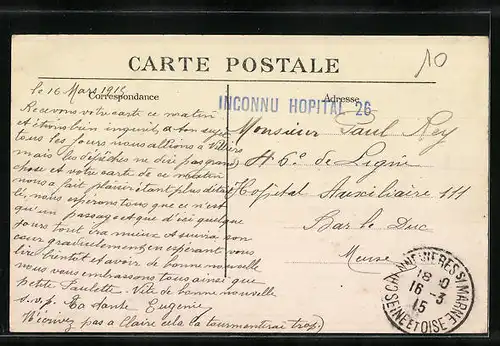 10
CARTE POSTALE
Correspondance
Adresse
INCONNU HOPITAL 26
le 16 Mars 1915
Recevons votre carte ce matin
et étions bien inquiets, a ton sujet
tous les jours nous allions à Villiers
mais les dépêches ne dise pas grand
chose et votre carte de ce matin
nous a fait plaisir étant plus détail
lé, nous espérons tous que ce n'est
qu'un passage et que d'ici quelque
jours tout ira mieux et suivra son
cour graduellement en espérant vous
lire bientot et avoir de bonne nouvelle
nous vous embrassons tous ainsi que
petite Paulette. Vite de bonne nouvelle
s.v.p. Ta tante Eugenie
N'écrivez pas a Claire cela la tourmenterai trop.)
Monsieur Paul Rey
de Ligne
Hopital Auxiliaire 111
Bar le Duc
Meuse
CHENNEVIERES S/ MARNE
18 10
16 -3
15
SEINE ET OISE